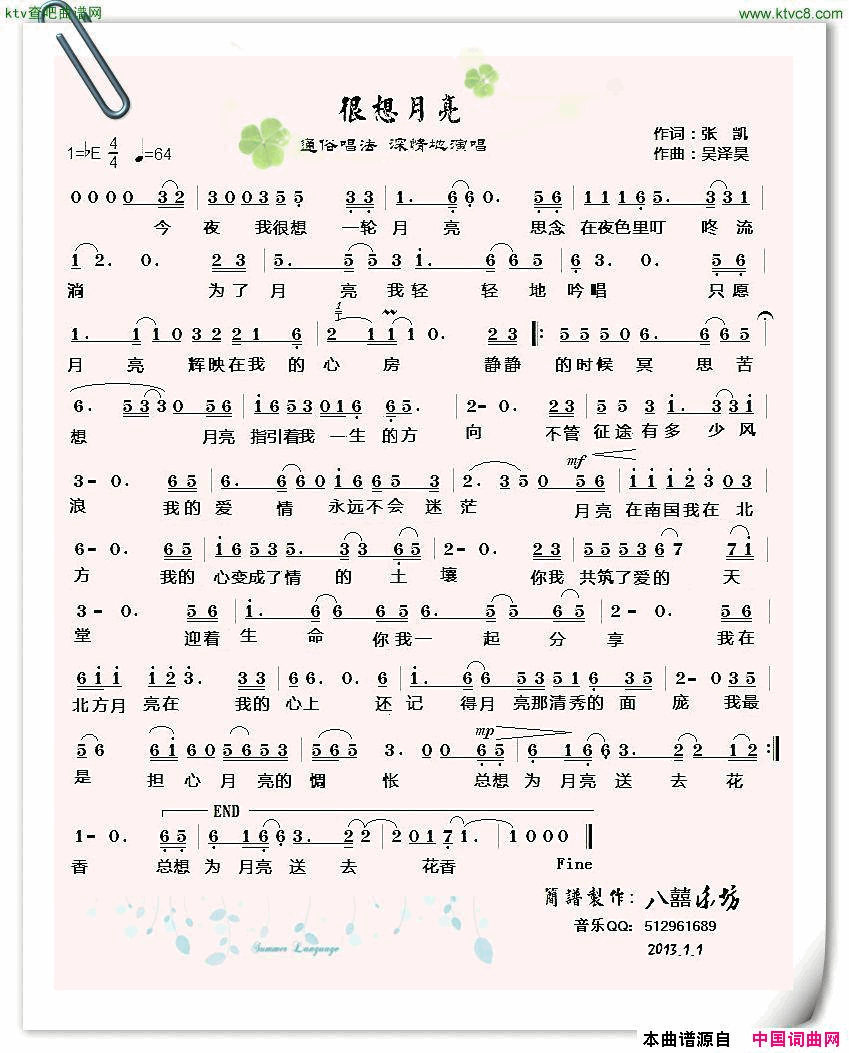 ktv查吧曲谱网
www.ktvc8.com
很想月亮
通俗唱法 深情地演唱
作词：张 凯
作曲：吴泽昊
1=♭E 4/4 ♩=64
0 0 0 0 3 2 | 3 0 0 3 5 5 3 3 | 1. 6 6 0. 5 6 | 1 1 1 6 5. 3 3 1 |
今 夜 我很想 一轮 月 亮 思念 在夜色里叮 咚 流
1 2. 0. 2 3 | 5. 5 5 3 1. 6 6 5 | 6 3. 0. 5 6 |
淌 为了 月 亮 我轻 轻 地 吟唱 只愿
1. 1 1 0 3 2 2 1 6 | 2 1 1 1 0. 2 3 |: 5 5 5 0 6. 6 6 5 |
月 亮 辉映在我 的 心 房 静静 的时候 冥 思 苦
6. 5 3 3 0 5 6 | 1 6 5 3 0 1 6 6 5. | 2 - 0. 2 3 | 5 5 5 1. 3 3 1 |
想 月亮 指引着我 一生 的方 向 不管 征途有多 少风
mf
3 - 0. 6 5 | 6. 6 6 0 1 6 6 5 | 2. 3 5 0 5 6 | 1 1 1 2 3 0 3 |
浪 我的 爱 情 永远不会 迷 茫 月亮 在南国我在 北
6 - 0. 6 5 | 1 6 5 3 5. 3 3 6 5 | 2 - 0. 2 3 | 5 5 5 3 6 7 7 1 |
方 我的 心变成了情 的 土 壤 你我 共筑了爱的 天
3 - 0. 5 6 | 1. 6 6 6 5 6. 5 5 6 5 | 2 - 0. 5 6 |
堂 迎着 生 命 你我一 起 分 享 我在
6 1 1 1 2 3. 3 3 | 6 6. 0. 6 | 1. 6 6 5 3 5 1 6 3 5 | 2 - 0 3 5 |
北方月 亮在 我的 心上 还 记 得月 亮那清秀的 面 庞 我最
mp
5 6 6 1 6 0 5 6 5 3 | 5 6 5 3. 0 0 6 5 | 6 1 6 6 3. 2 2 1 2 :|
是 担 心 月 亮的 惆 怅 总想 为 月亮 送 去 花
END
1 - 0. 6 5 | 6 1 6 6 3. 2 2 | 2 0 1 7 1. | 1 0 0 0 |
香 总想 为 月亮 送 去 花香 Fine
簡譜製作：八囍乐坊
音乐QQ：512961689
2013.1.1
Summer Language
本曲谱源自 中国词曲网